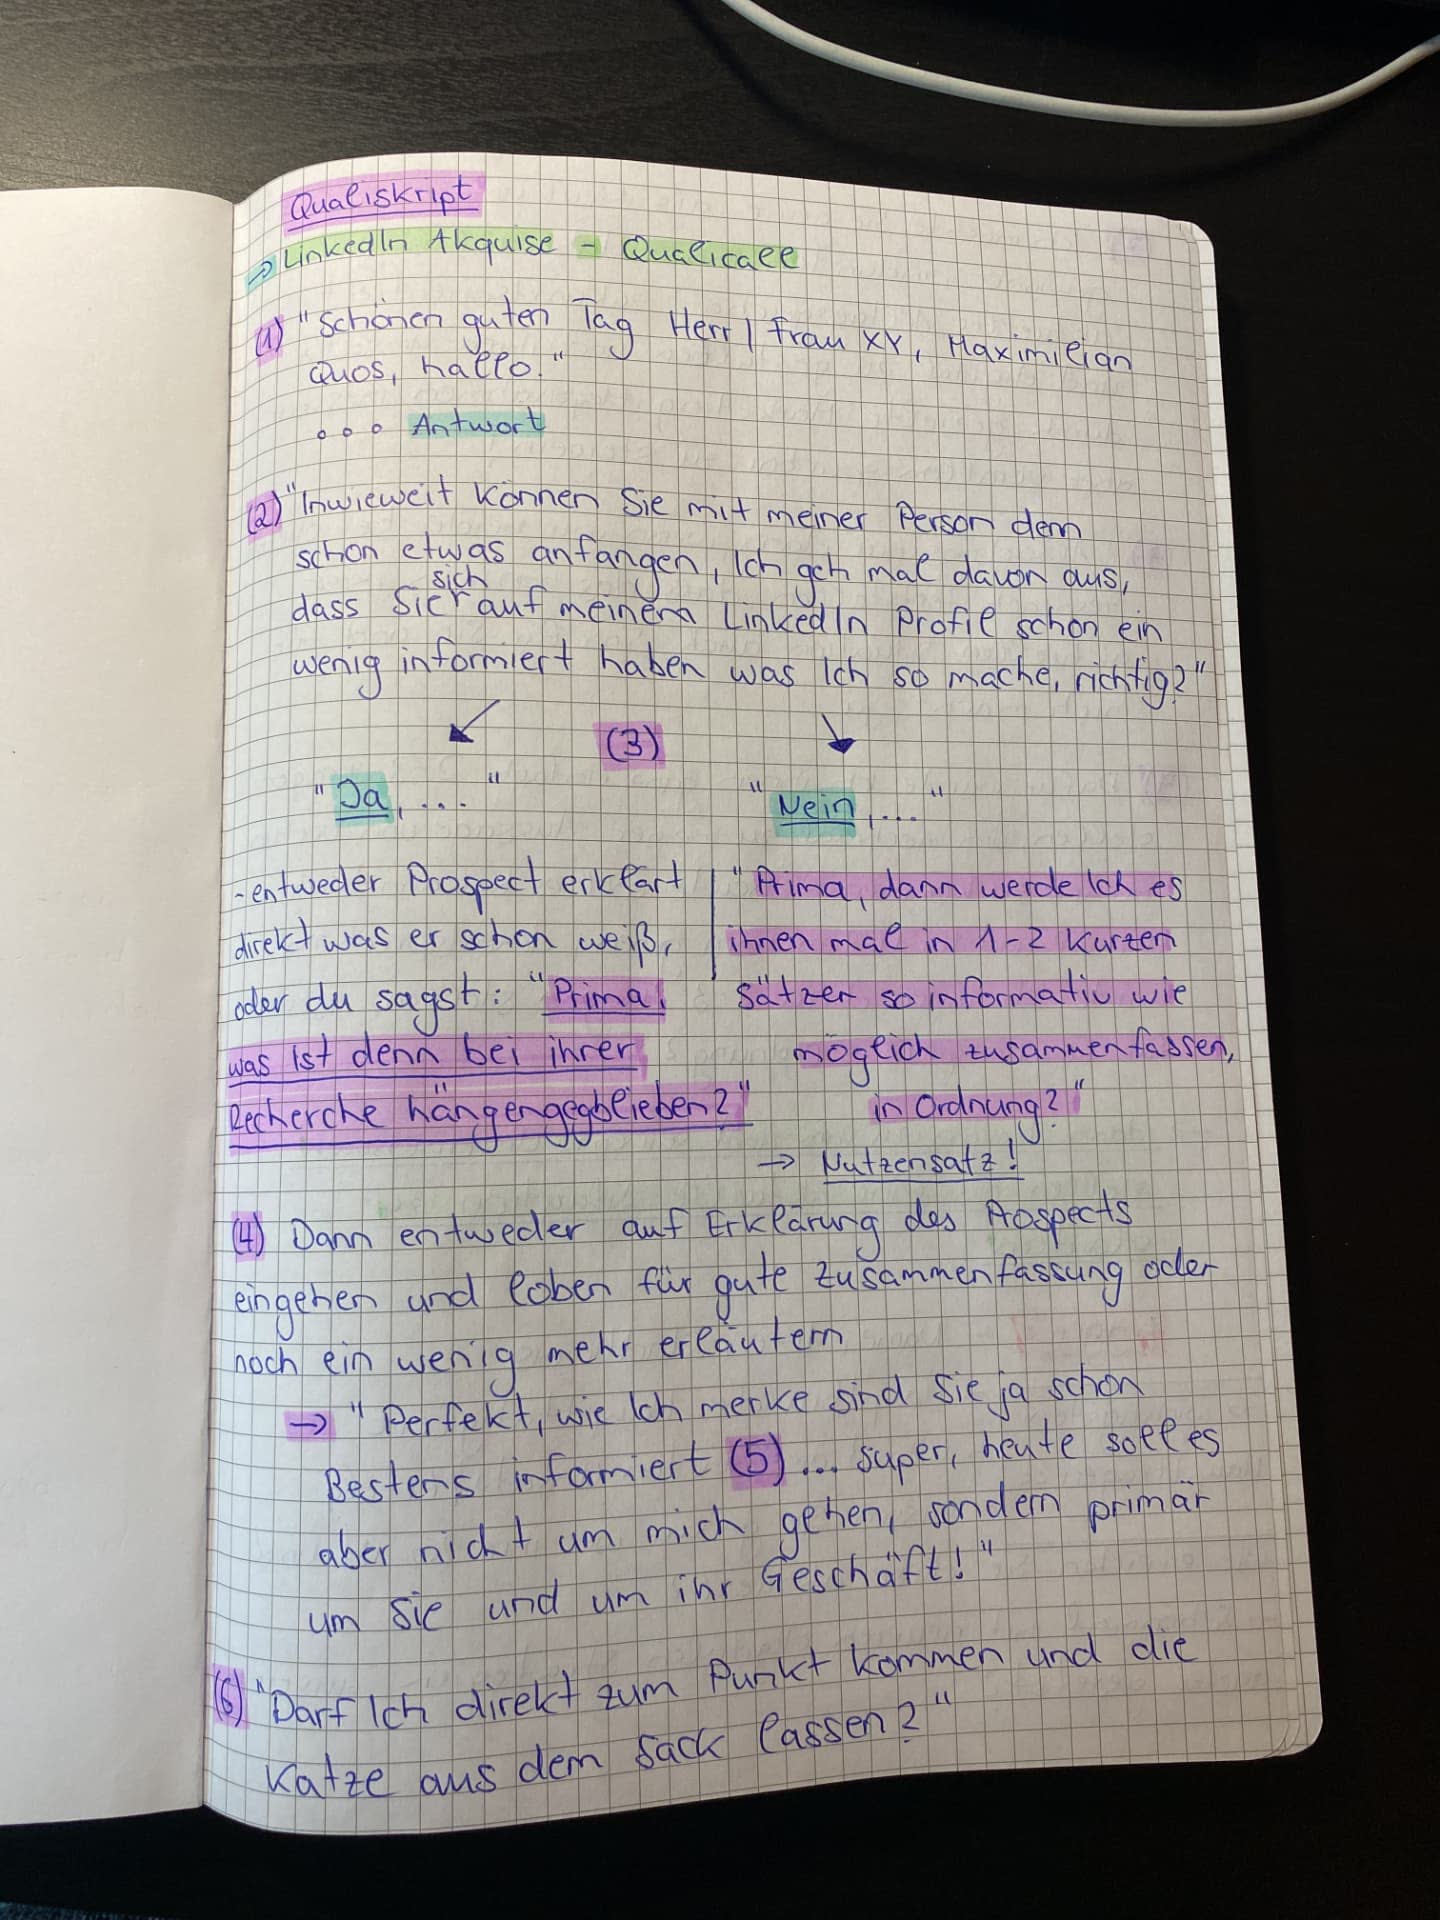 Qualiskript
→ LinkedIn Akquise - Qualicall
(1) "Schönen guten Tag Herr / Frau XY, Maximilian
Quos, hallo."
° ° ° Antwort
(2) "Inwieweit können Sie mit meiner Person denn
schon etwas anfangen, Ich geh mal davon aus,
sich
dass Sie auf meinem LinkedIn Profil schon ein
wenig informiert haben was Ich so mache, richtig?"
(3)
"Ja, ...."
"Nein, ..."
- entweder Prospect erklärt
direkt was er schon weiß,
oder du sagst: "Prima,
was ist denn bei ihrer
Recherche hängengegblieben?"
"Prima, dann werde Ich es
ihnen mal in 1-2 kurzen
Sätzen so informativ wie
möglich zusammenfassen,
in Ordnung?"
→ Nutzensatz!
(4) Dann entweder auf Erklärung des Prospects
eingehen und loben für gute Zusammenfassung oder
noch ein wenig mehr erläutern
→ "Perfekt, wie Ich merke sind Sie ja schon
Bestens informiert (5) ... super, heute soll es
aber nicht um mich gehen, sondern primär
um Sie und um ihr Geschäft!"
(6) "Darf Ich direkt zum Punkt kommen und die
Katze aus dem Sack lassen?"